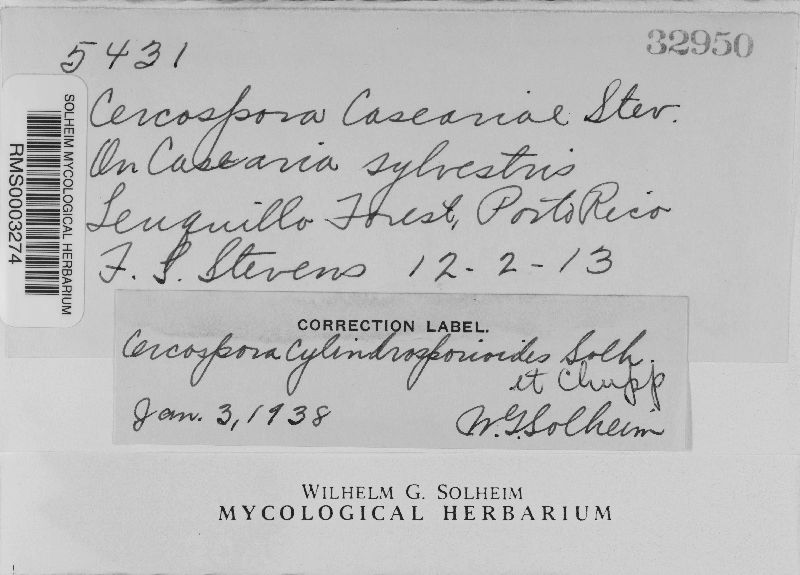 5431
32950
Cercospora Caseariae Stev.
On Casearia sylvestris
Lenquillo Forest, Porto Rico
F. L. Stevens 12-2-13
SOLHEIM MYCOLOGICAL HERBARIUM
RMS0003274
CORRECTION LABEL.
Cercospora Cylindrosporioides Solh.
et Chupp
Jan. 3, 1938
W.G. Solheim
WILHELM G. SOLHEIM
MYCOLOGICAL HERBARIUM